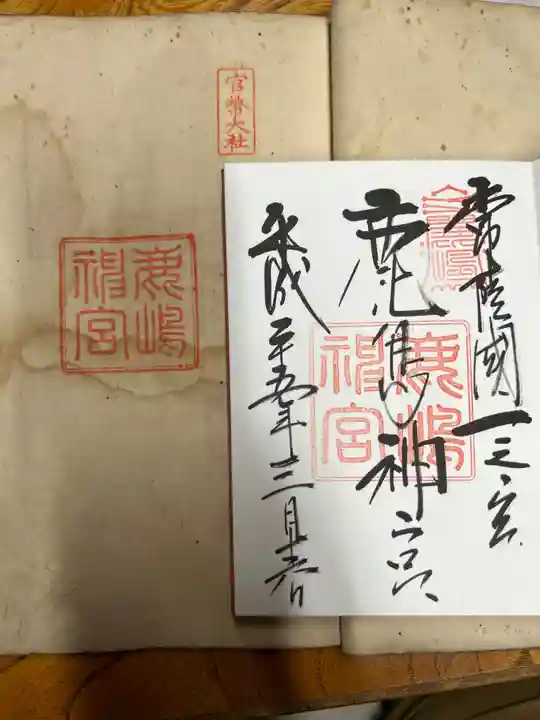 常陸國一之宮
鹿島神宮
平成二十五年三月
官幣大社
鹿嶋
神宮
鹿嶋
神宮